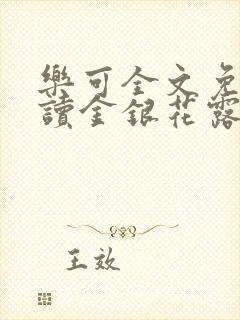 樂可全文免
讀金銀花露
王效